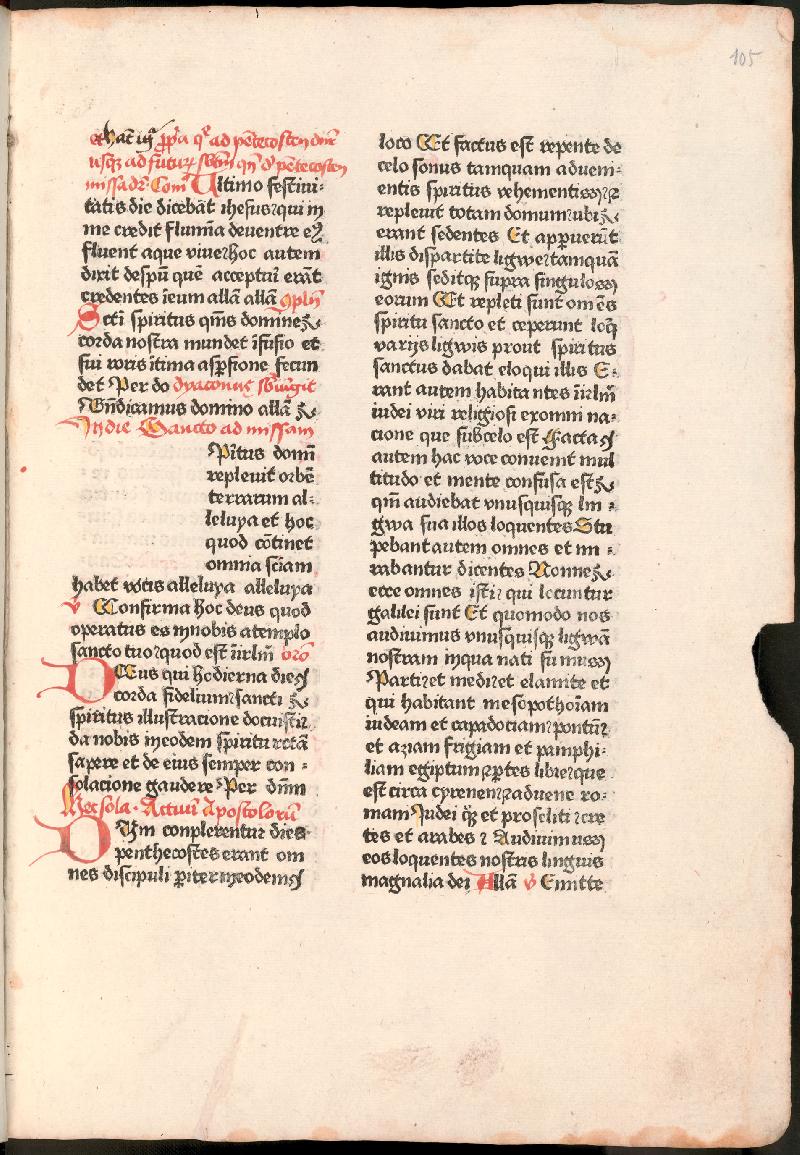 105
usq̃ ad futurã
missadr̃ Com̃ Ultimo festiui-
tatis die dicebãt ihesus qui in
me credit flumĩa deuentre eꝰ
fluent aque viue hoc autem
dixit despũ quẽ accepturi erãt
credentes ĩeum allã allã 9plñ
Scti spiritus q̃ms domne
corda nostra mundet ĩfusio et
sui roris ĩtima asꝑsione fecun
det Per do dyaconus
Bñdicamus domino allã
Jndie Sancto ad missam
Pĩtus domĩ
repleuit orbẽ
terrarum al-
leluya et hoc
quod cõtinet
omnia sciam
habet vocis alleluya alleluya
v Confirma hoc deus quod
operatus es innobis atemplo
sancto tuo quod est ĩrlm̃ orõ
DEus qui hodierna die
corda fidelium sancti
spiritus illustracione docuisti
da nobis ineodem spiritu rectã
sapere et de eius semper con-
solacione gaudere Per dñm
Actuũ Apostolorũ
DVm complerentur dies
penthecostes erant om
nes discipuli ꝑiter ineodem
loco Et factus est repente de
celo sonus tamquam adueni-
entis spiritus vehementis
repleuit totam domum ubi
erant sedentes Et apꝑuerũt
illis dispartite ligwe tamquã
ignis seditq̃ supra singulos
eorum Et repleti sunt om̃es
spiritu sancto et ceperunt loq̃
varijs ligwis prout spiritus
sanctus dabat eloqui illis E-
rant autem habitantes ĩirlm̃
iudei viri religiosi exomni na-
cione que subcelo est Facta
autem hac voce conuenit mul
titudo et mente confusa est
qm̃ audiebat vnusquisq̃ lin-
gwa sua illos loquentes Stu
pebant autem omnes et mi-
rabantur dicentes Nonne
ecce omnes isti qui locuntur
galilei sunt Et quomodo nos
audiuimus vnusquisq̃ ligwã
nostram inqua nati sumus
Parti et medi et elamite et
qui habitant mesopothoĩam
iudeam et capadociam pontũ
et aziam frigiam et pamphi-
liam egiptum ꝑtes libie que
est circa cyrenem aduene ro-
mani Judei q̃ et proseliti cre
tes et arabes Audiuimus
eos loquentes nostris linguis
magnalia dei Allã v Emitte